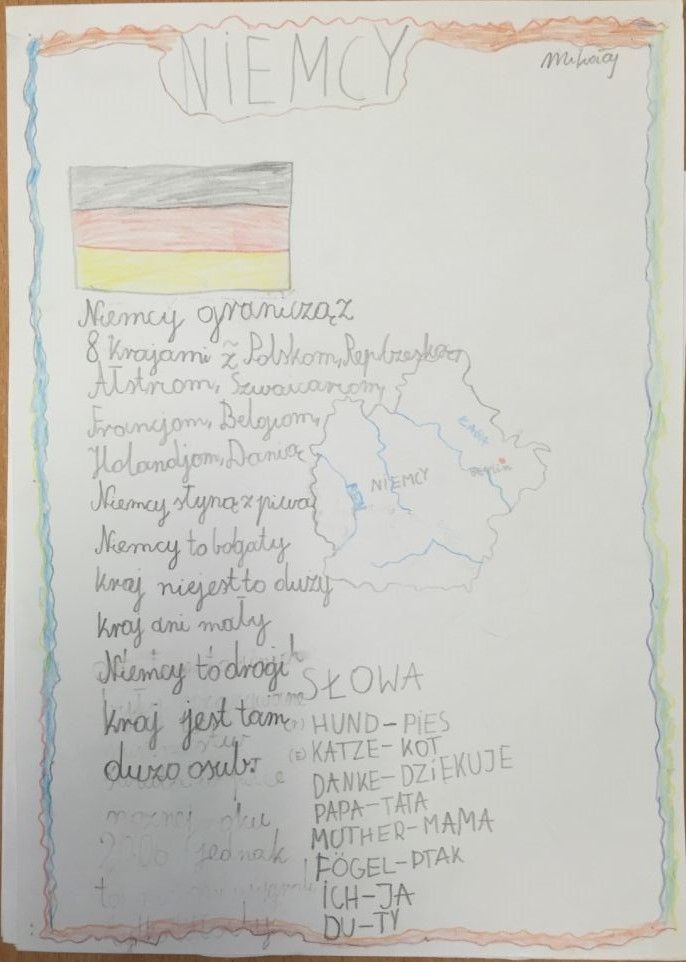 NIEMCY
Mikołaj
Niemcy graniczą z
8 Krajami z Polskom, Repbzeską
Ałstriom, Szwaicariom,
Francjom, Belgiom,
Holandjom, Danią
Niemcy słyną z piwa
Niemcy to bogaty
kraj niejest to duży
kraj ani mały
Niemcy to drogi
kraj jest tam
dużo osub.
ŁABA
Berlin
NIEMCY
SŁOWA
HUND-PIES
KATZE-KOT
DANKE-DZIEKUJE
PAPA-TATA
MUTHER-MAMA
FÖGEL-PTAK
ICH-JA
DU-TY
nożnej
2006 jednak